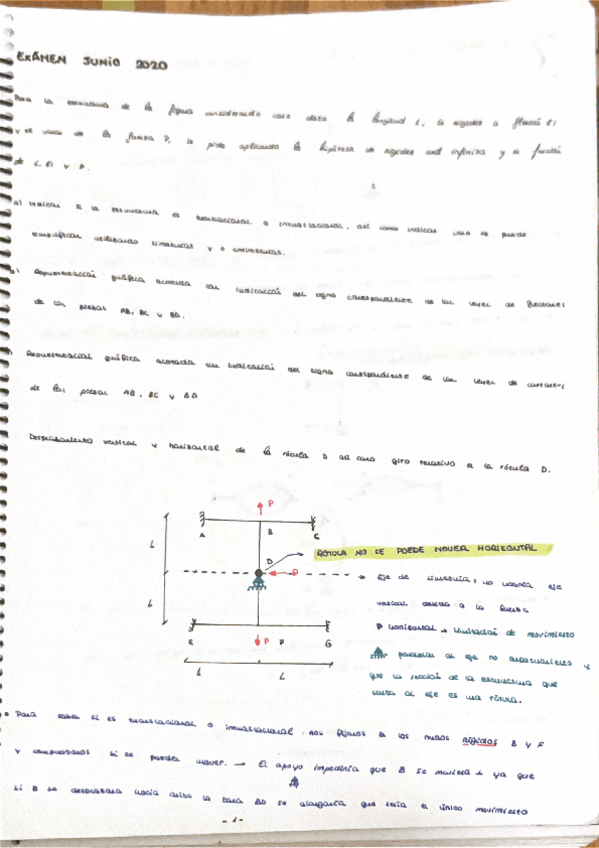 EXÁMEN JUNIO 2020
Para la estructura de la figura considerando como dato la longitud L, la rigidez a flexión EI
y el valor de la fuerza P, se pide aplicando la hipótesis de rigidez axil infinita y en función
de L, EI y P.
a) Indicar si la estructura es traslacional o intraslacional, así como indicar como se puede
simplificar utilizando simetrías y o antimetrías.
b) Representación gráfica acotada con indicación del signo correspondiente de las leyes de flectores
de las piezas AB, BC y BD.
Representación gráfica acotada con indicación del signo correspondiente de las leyes de cortantes
de las piezas AB, BC y BD
Desplazamiento vertical y horizontal de la rótula D así como giro relativo en la rótula D.
P
A
B
C
L
D
RÓTULA NO SE PUEDE MOVER HORIZONTAL
P
Eje de simetría; no
vertical debido a la fuerza
P horizontal
movimiento
L
E
P
F
G
paralelo al eje no
y
que la sección de la estructura que
corta al eje es una rótula.
L
L
Para saber si es traslacional o intraslacional, nos fijamos en los nudos rígidos B y F
y comprobamos si se pueden mover. → El apoyo impediría que B se moviera ya que
si B se desplazara hacia arriba la barra BD se alargaría que sería el único movimiento
- 1 -